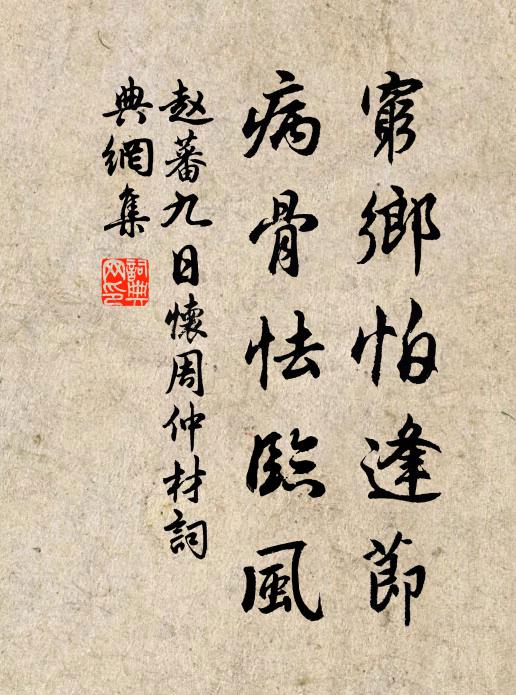 窮鄉怕逢節
病骨怯臨風
趙蕃九日懷周仲材詞
典網集
詞典網印